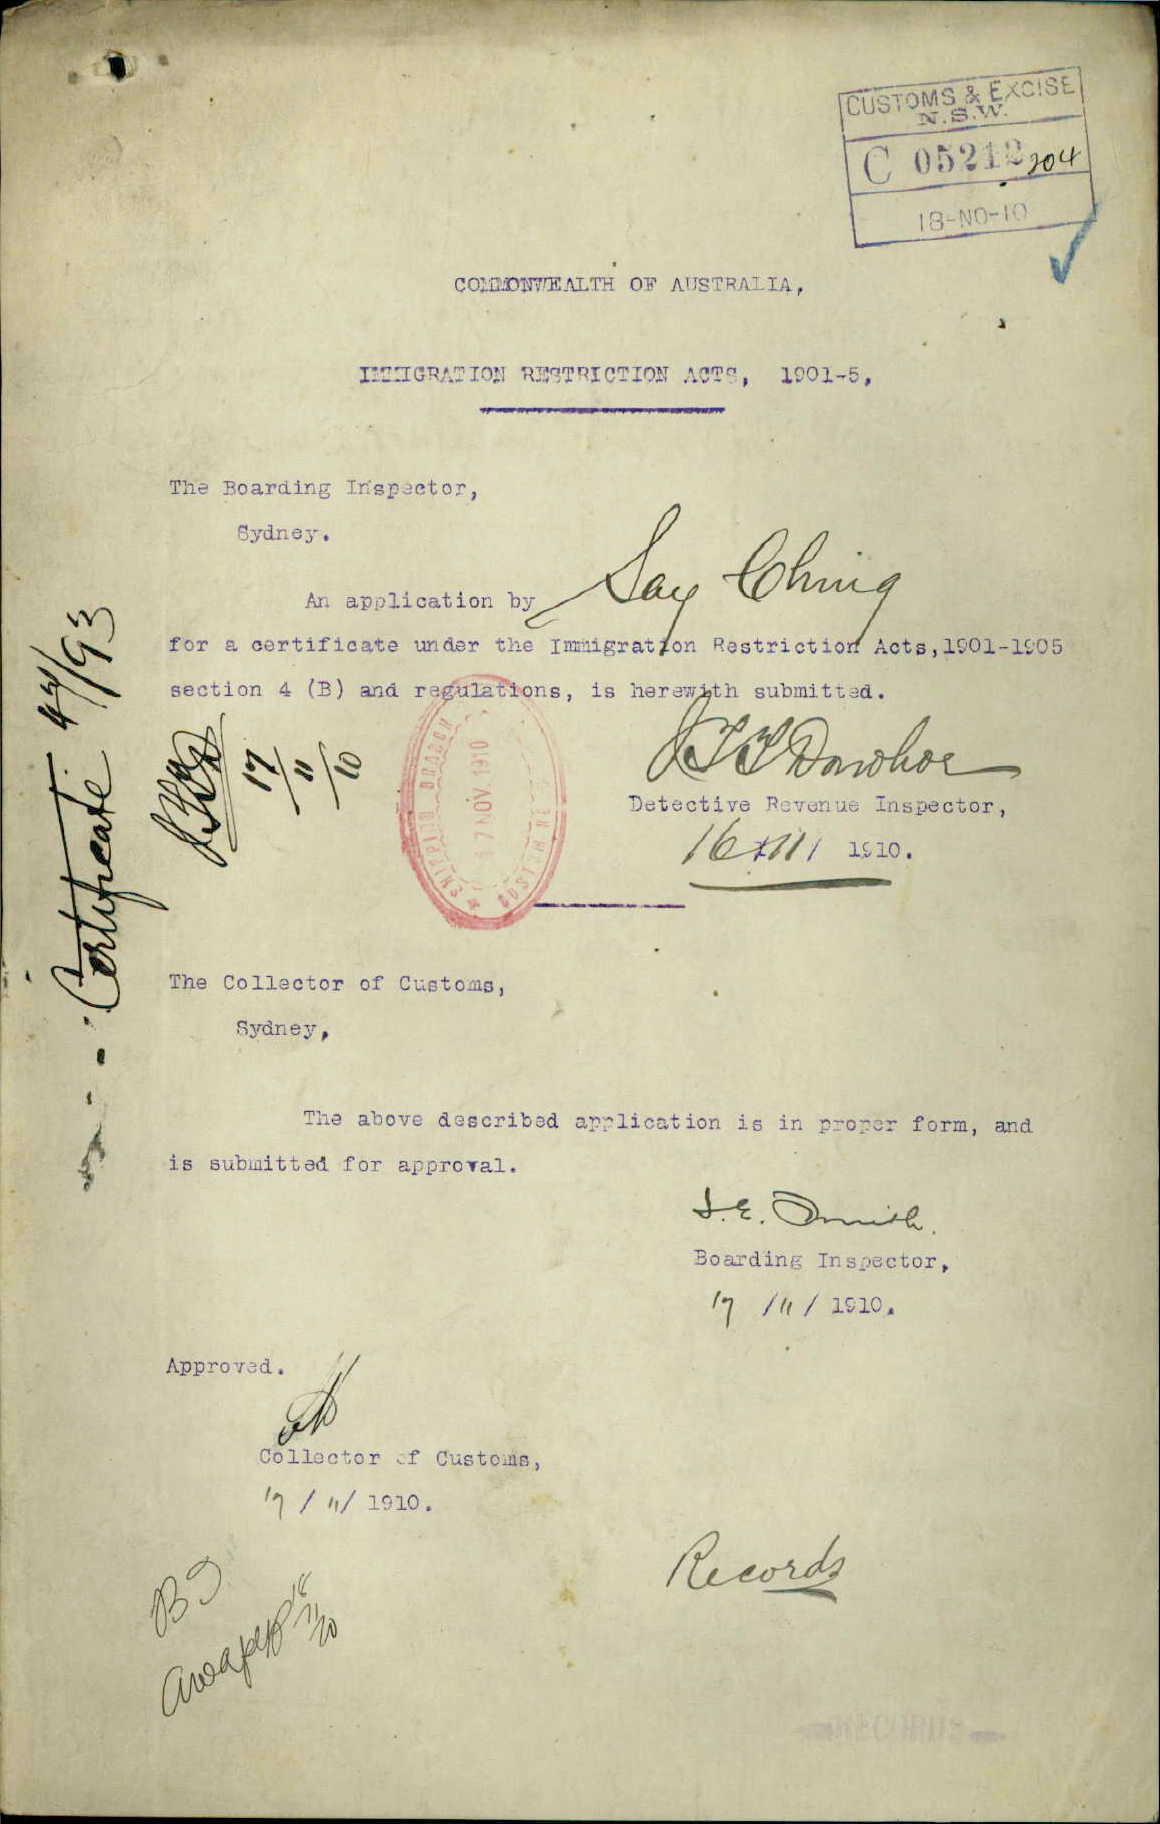 CUSTOMS & EXCISE
N.S.W.
C 05212 204
18-NO-10
COMMONWEALTH OF AUSTRALIA,
IMMIGRATION RESTRICTION ACTS, 1901-5,
The Boarding Inspector,
Sydney.
An application by Say Ching
for a certificate under the Immigration Restriction Acts, 1901-1905
section 4 (B) and regulations, is herewith submitted.
Certificate 44/93
17/11/10
SHIPPING BRANCH
17 NOV 1910
J T T Donohoe
Detective Revenue Inspector,
16/11/ 1910.
The Collector of Customs,
Sydney,
The above described application is in proper form, and
is submitted for approval.
J.E. Smith.
Boarding Inspector,
17 /11/ 1910.
Approved.
Collector of Customs,
17 / 11/ 1910.
Records
B I
18/11/10
RECORDS